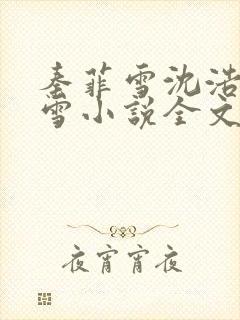 秦菲雪沈浩
雪小说全文
夜宵宵夜